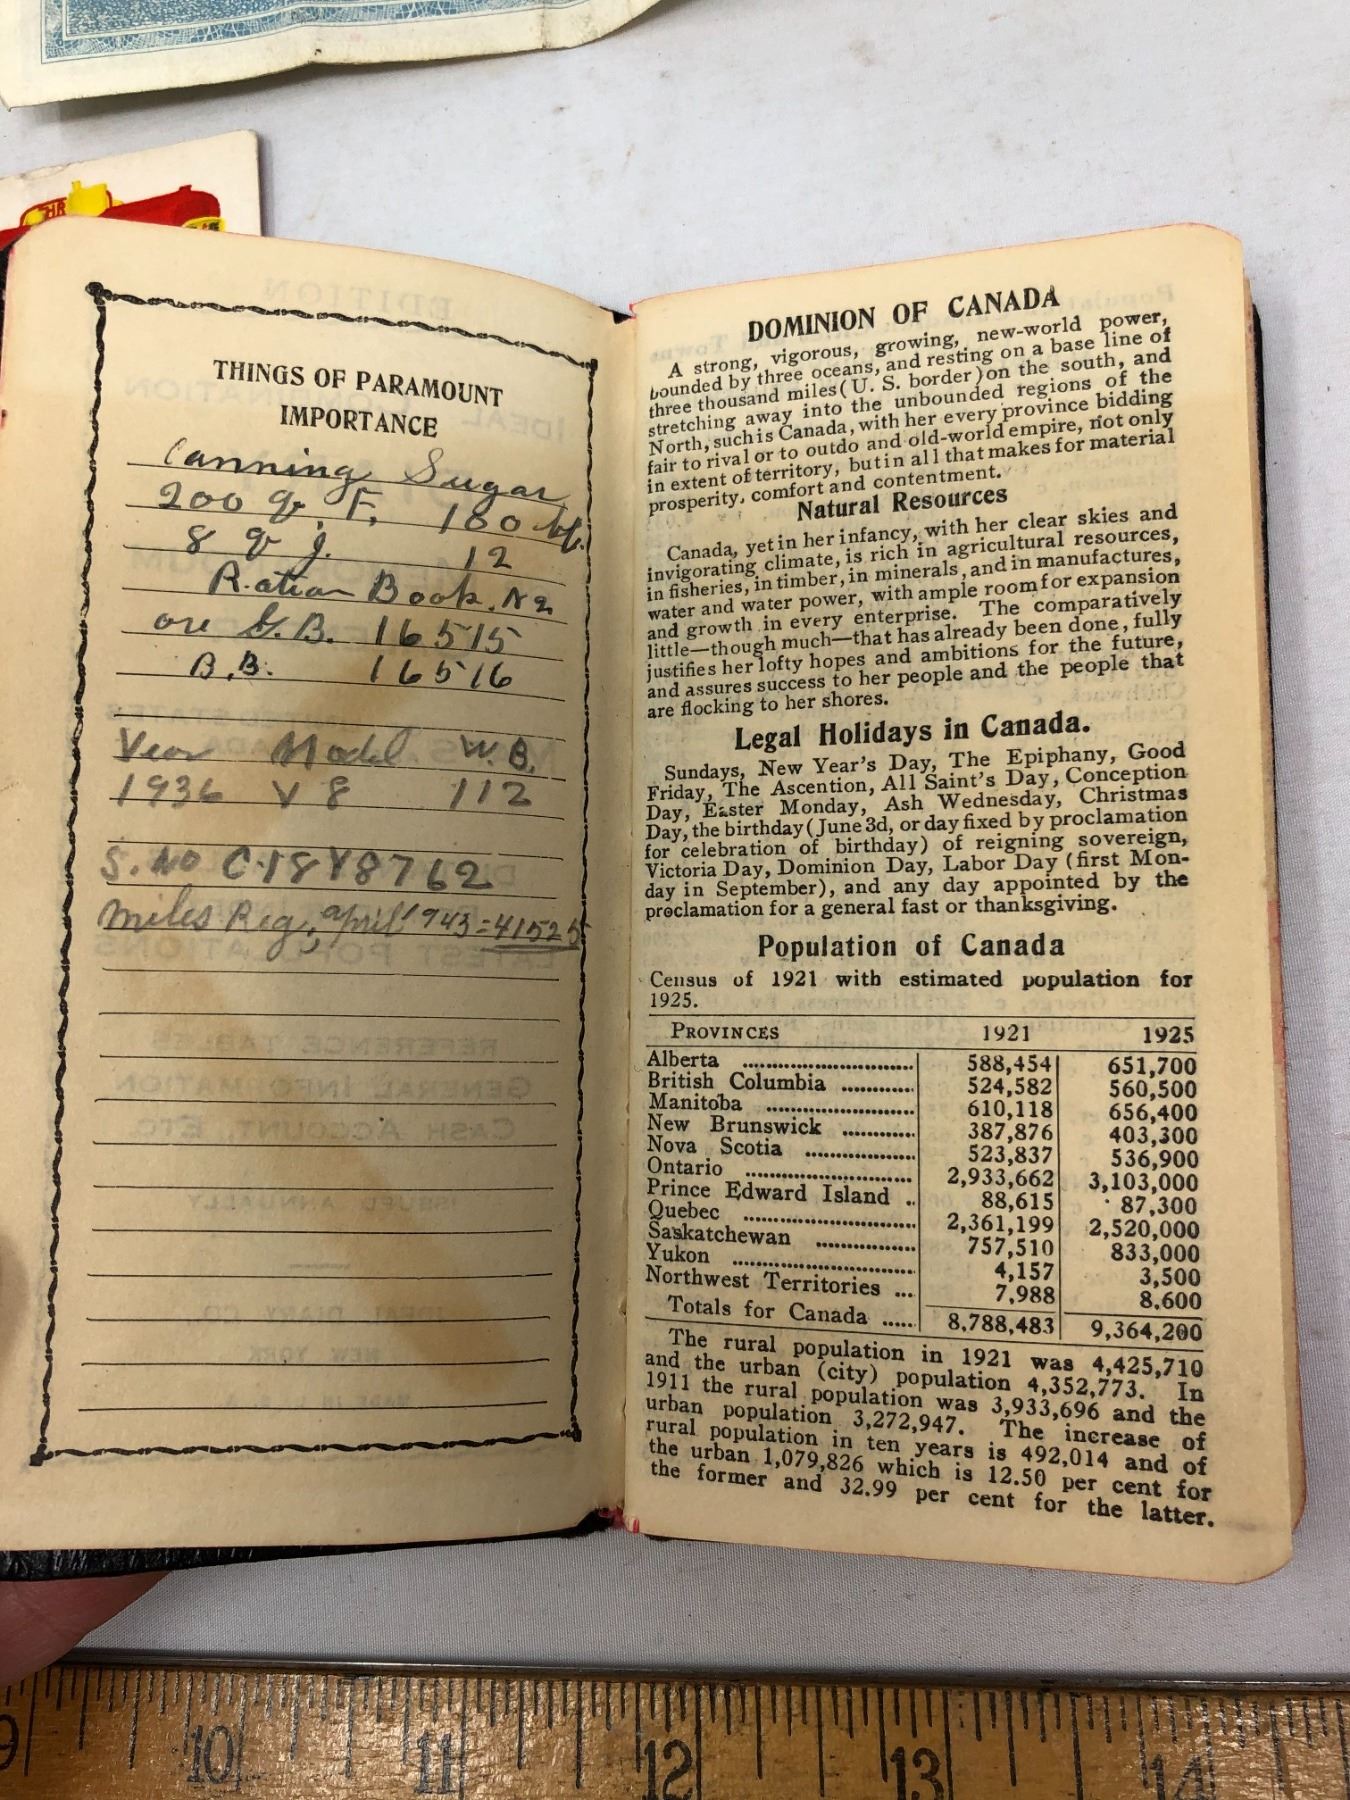 THINGS OF PARAMOUNT
IMPORTANCE
Canning Sugar
200 qr F. 100 lbs.
8 qr J. 12
Ration Book. No
ore G.B. 16515
B.B. 16516
Year Model W.B.
1936 V 8 112
S. No C-18Y8762
miles Reg, april 1943 = 41525
DOMINION OF CANADA
A strong, vigorous, growing, new-world power,
bounded by three oceans, and resting on a base line of
three thousand miles (U. S. border) on the south, and
stretching away into the unbounded regions of the
North, such is Canada, with her every province bidding
fair to rival or to outdo and old-world empire, not only
in extent of territory, but in all that makes for material
prosperity, comfort and contentment.
Natural Resources
Canada, yet in her infancy, with her clear skies and
invigorating climate, is rich in agricultural resources,
in fisheries, in timber, in minerals, and in manufactures,
water and water power, with ample room for expansion
and growth in every enterprise. The comparatively
little—though much—that has already been done, fully
justifies her lofty hopes and ambitions for the future,
and assures success to her people and the people that
are flocking to her shores.
Legal Holidays in Canada.
Sundays, New Year's Day, The Epiphany, Good
Friday, The Ascention, All Saint's Day, Conception
Day, Easter Monday, Ash Wednesday, Christmas
Day, the birthday (June 3d, or day fixed by proclamation
for celebration of birthday) of reigning sovereign,
Victoria Day, Dominion Day, Labor Day (first Mon-
day in September), and any day appointed by the
proclamation for a general fast or thanksgiving.
Population of Canada
Census of 1921 with estimated population for
1925.
PROVINCES 1921 1925
Alberta 588,454 651,700
British Columbia 524,582 560,500
Manitoba 610,118 656,400
New Brunswick 387,876 403,300
Nova Scotia 523,837 536,900
Ontario 2,933,662 3,103,000
Prince Edward Island 88,615 87,300
Quebec 2,361,199 2,520,000
Saskatchewan 757,510 833,000
Yukon 4,157 3,500
Northwest Territories 7,988 8.600
Totals for Canada 8.788,483 9,364,200
The rural population in 1921 was 4,425,710
and the urban (city) population 4,352,773. In
1911 the rural population was 3,933,696 and the
urban population 3,272,947. The increase of
rural population in ten years is 492,014 and of
the urban 1,079,826 which is 12.50 per cent for
the former and 32.99 per cent for the latter.
9 10 11 12 13 14